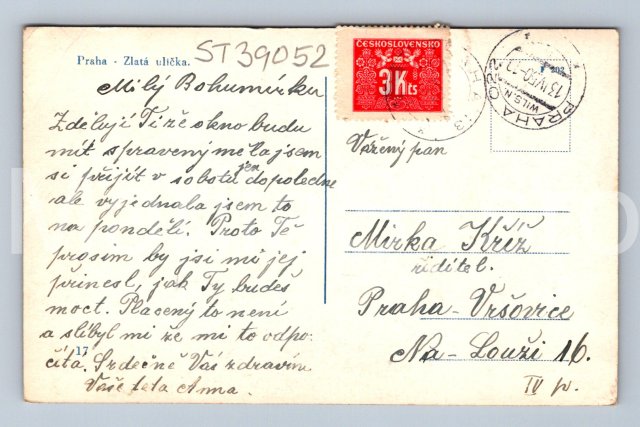 Praha - Zlatá ulička.
ST39052
Milý Bohumírku
Zděluji Ti že okno budu
mít spravený měla jsem
si přijít v sobotu jen dopoledne
ale vyjednala jsem to
na pondělí. Proto Tě
prosím by jsi mi jej
přinesl, jak Ty budeš
moct. Placený to není
a slíbil mi že mi to odpo-
čítá. Srdečně Vás zdravím
Vaše teta Anna.
17
ČESKOSLOVENSKO
3 Kčs
PRAHA
WILSON
13.IV.50
Vážený pan
Mirka Kříž
ředitel.
Praha-Vršovice
Na-Louži 16.
IV p.